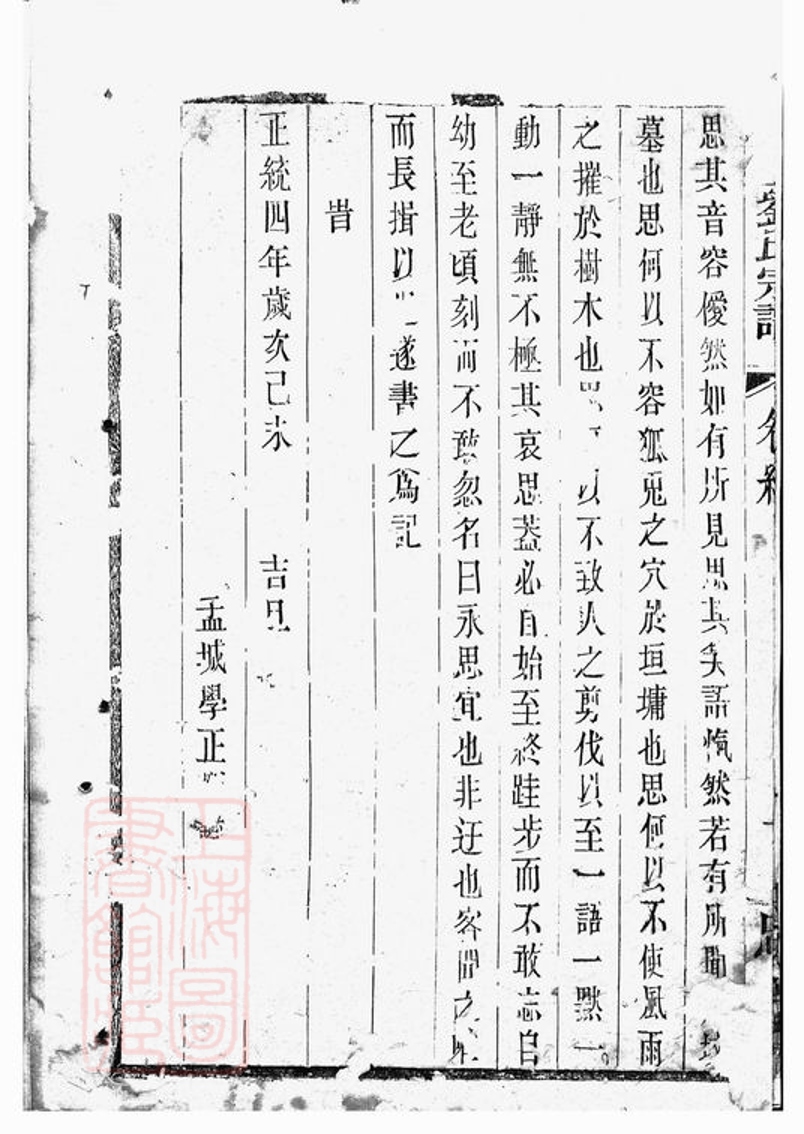 氏宗譜
思其音容優然如有所見思其笑語愾然若有所聞
墓也思何以不容狐兎之穴於垣墉也思何以不使風雨
之摧於樹木也思以不致人之剪伐以至一語一黙一
動一靜無不極其哀思葢必自始至終跬步而不敢忘自
幼至老頃刻而不敢忽名曰永思宜也非迂也客聞之
而長揖以遂書之爲記
旹
正統四年歲次己未 吉旦
孟城學正
上海圖書館藏